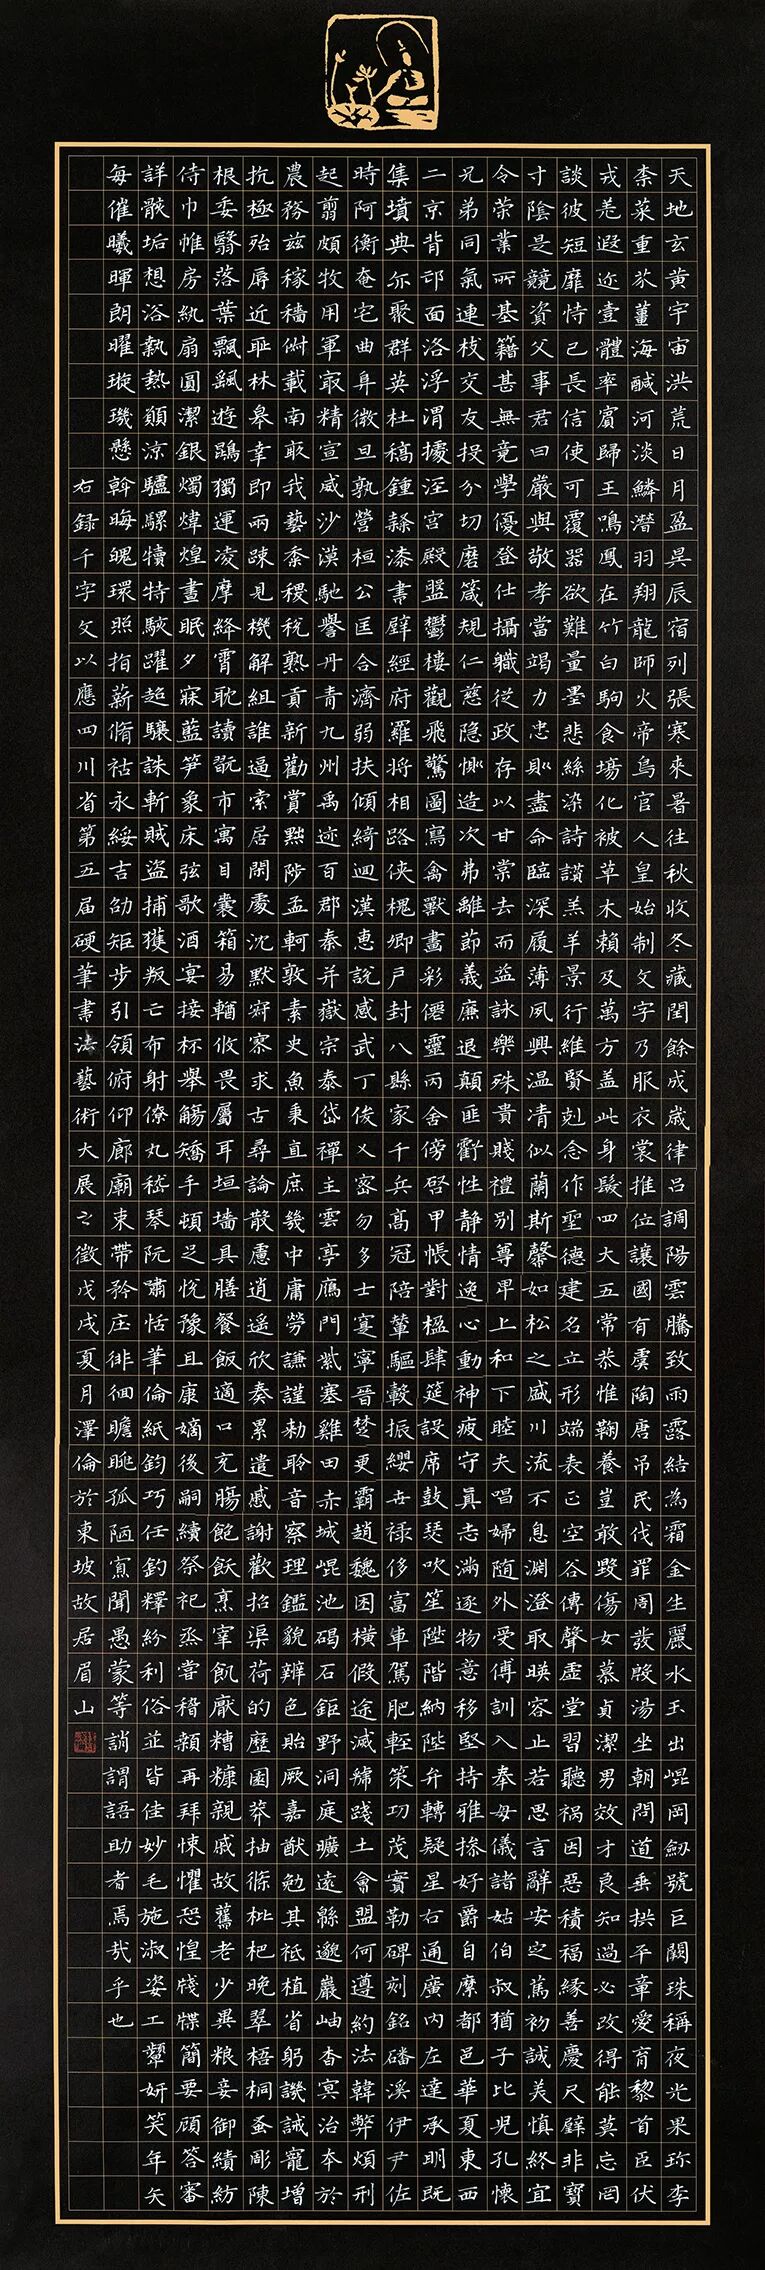 天地玄黃宇宙洪荒日月盈昃辰宿列張寒來暑往秋收冬藏閏餘成歲律呂調陽雲騰致雨露結為霜金生麗水玉出崐岡劒號巨闕珠稱夜光果珎李
柰菜重芥薑海鹹河淡鱗潛羽翔龍師火帝鳥官人皇始制文字乃服衣裳推位讓國有虞陶唐吊民伐罪周發殷湯坐朝問道垂拱平章愛育黎首臣伏
戎羌遐迩壹體率賓歸王鳴鳳在竹白駒食場化被草木賴及萬方盖此身髮四大五常恭惟鞠養豈敢毀傷女慕貞潔男效才良知過必改得能莫忘罔
談彼短靡恃己長信使可覆器欲難量墨悲絲染詩讚羔羊景行維賢剋念作聖德建名立形端表正空谷傳聲虛堂習聽禍因惡積福緣善慶尺璧非寶
寸陰是競資父事君曰嚴與敬孝當竭力忠則盡命臨深履薄夙興温凊似蘭斯馨如松之盛川流不息淵澄取暎容止若思言辭安定篤初誠美慎終宜
令榮業所基籍甚無竟學優登仕攝職從政存以甘棠去而益詠樂殊貴賤禮別尊卑上和下睦夫唱婦隨外受傅訓入奉母儀諸姑伯叔猶子比兒孔懷
兄弟同氣連枝交友投分切磨箴規仁慈隐惻造次弗離節義廉退顛匪虧性静情逸心動神疲守真志滿逐物意移堅持雅操好爵自縻都邑華夏東西
二京背邙面洛浮渭據涇宮殿盤鬱樓觀飛驚圖寫禽獸畫彩僊靈丙舍傍啓甲帳對楹肆筵設席鼓瑟吹笙陞階納陛弁轉疑星右通廣內左達承明既
集墳典亦聚群英杜稿鍾隸漆書壁經府羅將相路俠槐卿戶封八縣家千兵高冠陪輦驅轂振纓世祿侈富車駕肥輕策功茂實勒碑刻銘磻溪伊尹佐
時阿衡奄宅曲阜微旦孰營桓公匡合濟弱扶傾綺迴漢惠說感武丁俊乂密勿多士寔寧晉楚更霸趙魏困橫假途滅虢踐土會盟何遵約法韓弊煩刑
起翦頗牧用軍最精宣威沙漠馳譽丹青九州禹迹百郡秦并嶽宗泰岱禪主雲亭鴈門紫塞雞田赤城崐池碣石鉅野洞庭曠遠緜邈巖岫杳冥治本於
農務茲稼穡俶載南畝我藝黍稷稅熟貢新勸賞黜陟孟軻敦素史魚秉直庶幾中庸勞謙謹勑聆音察理鑑貌辨色貽厥嘉猷勉其祗植省躬譏誡寵增
抗極殆辱近恥林皋幸即兩疎見機解組誰逼索居閑處沈默寂寥求古尋論散慮逍遙欣奏累遣慼謝歡招渠荷的歷園莽抽條枇杷晚翠梧桐蚤彫陳
根委翳落葉飄颻遊鵾獨運凌摩絳霄耽讀翫市寓目囊箱易輶攸畏屬耳垣墻具膳餐飯適口充腸飽飫烹宰飢厭糟糠親戚故舊老少異粮妾御績紡
侍巾帷房紈扇圓潔銀燭煒煌晝眠夕寐藍笋象床弦歌酒宴接杯舉觴矯手頓足悅豫且康嫡後嗣續祭祀烝嘗稽顙再拜悚懼恐惶牋牒簡要顧答審
詳骸垢想浴執熱願涼驢騾犢特駭躍超驤誅斬賊盜捕獲叛亡布射僚丸嵇琴阮嘯恬筆倫紙鈞巧任釣釋紛利俗並皆佳妙毛施淑姿工顰妍笑年矢
每催曦暉朗曜璇璣懸斡晦魄環照指薪脩祜永綏吉劭矩步引領俯仰廊廟束帶矜庄徘徊瞻眺孤陋寡聞愚蒙等誚謂語助者焉哉乎也
右録千字文以應四川省第五届硬筆書法藝術大展之徵戊戌夏月澤倫於東坡故居眉山